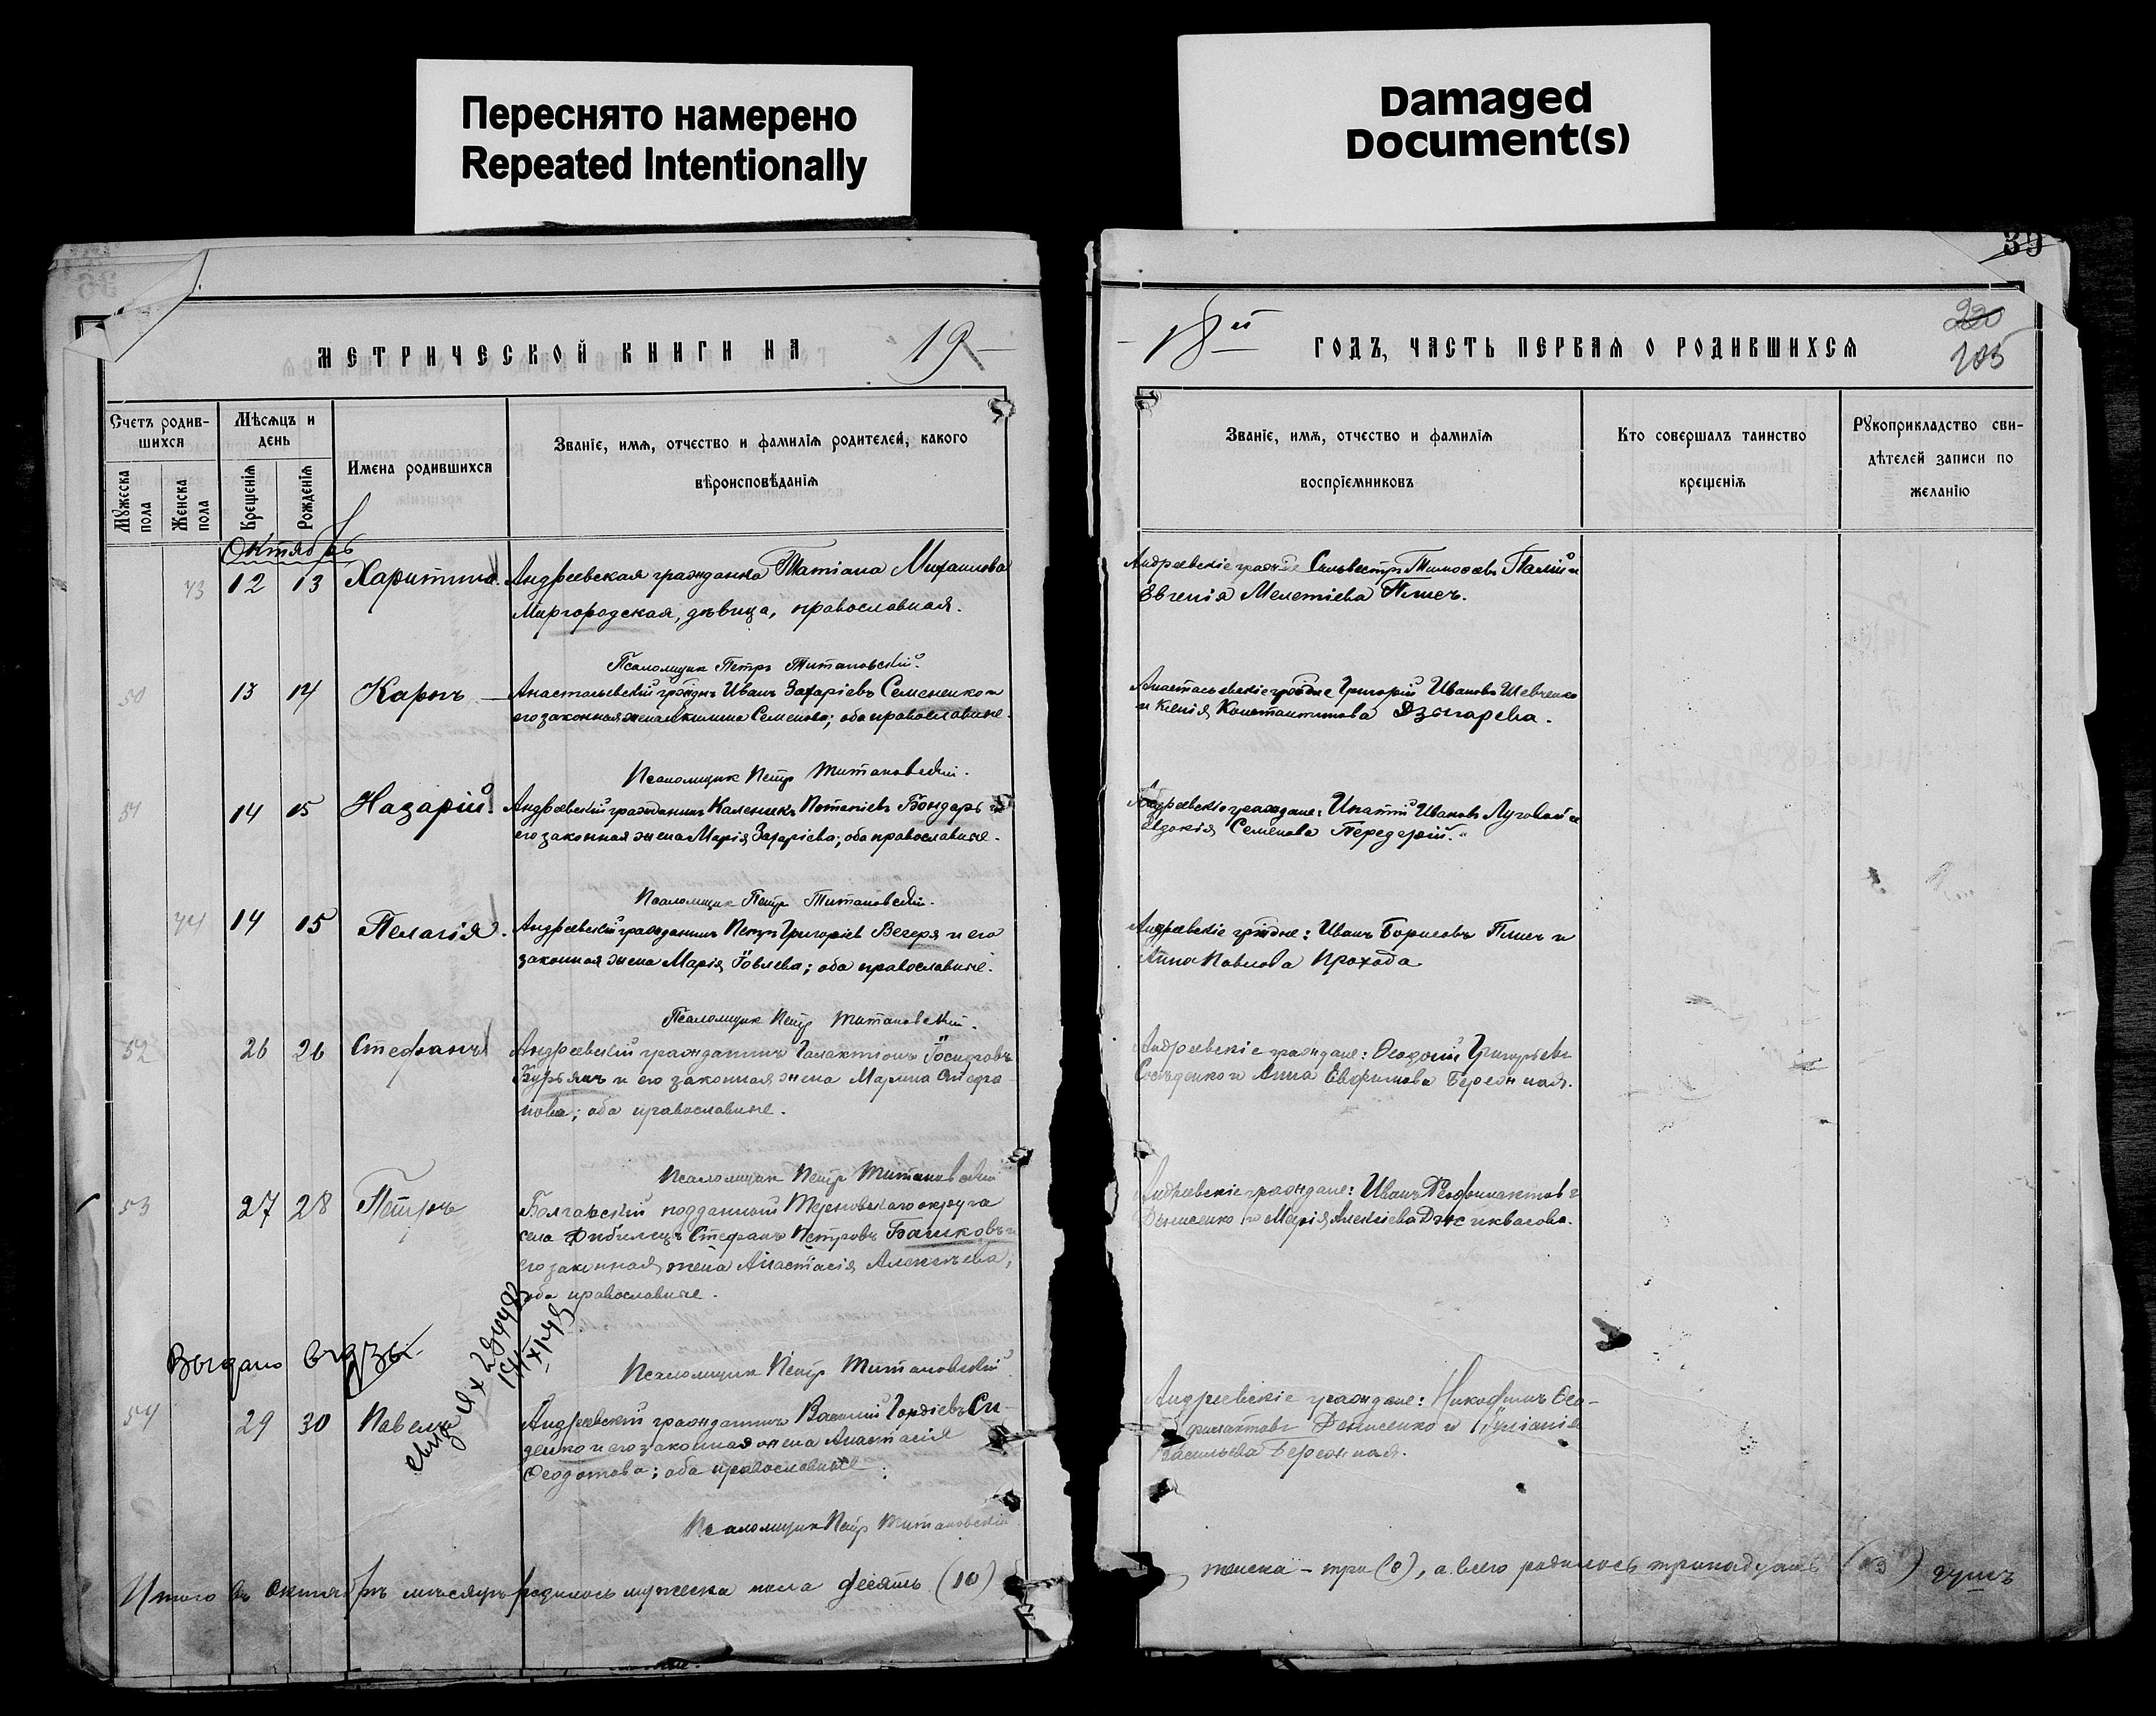 Переснято намерено
Repeated Intentionally
Damaged
Document(s)
39
220
205
МЕТРИЧЕСКОЙ КНИГИ НА 19
18й ГОДЪ, ЧАСТЬ ПЕРВАЯ О РОДИВШИХСЯ
Счетъ родив-
шихся
Мужеска пола
Женска пола
Мѣсяцъ и
день
Крещенія
Рожденія
Имена родившихся
Званіе, имя, отчество и фамилія родителей, какого
вѣроисповѣданія
Званіе, имя, отчество и фамилія
воспріемниковъ
Кто совершалъ таинство
крещенія
Рукоприкладство сви-
дѣтелей записи по
желанію
Октябрь
43 12 13 Харитина. Андреевская гражданка Татіана Михаилова
Миргородская, дѣвица, православная.
Андреевскіе Сильвестръ Тимофеевъ Палій и
Евгенія Мелетіева Пшеч.
Псаломщик Петръ Титановскій.
50 13 14 Карпъ Анастасьевскій Иванъ Захаріевъ Семененко и
его законная жена Акилина Семенова; оба православные.
Анастасьевскіе Григорій Ивановъ Шевченко
и Ксенія Константинова Дзыгарева.
Псаломщик Петр Титановскій.
51 14 15 Назарій. Андреевскій гражданинъ Каленикъ Потапіевъ Бондарь и
его законная жена Марія Захаріева; оба православные.
Андреевскіе граждане: Игнатій Ивановъ Луговой и
Евдокія Семенова Передерій.
Псаломщик Петр Титановскій.
44 14 15 Пелагія. Андреевскій гражданинъ Петръ Григоріев Вечеря и его
законная жена Марія Іовлева; оба православные.
Андреевскіе: Иванъ Борисовъ Пшеч и
Анна Павлова Прохода
Псаломщик Петр Титановскій.
52 26 26 Стефанъ Андреевскій гражданинъ Галактіонъ Іосифовъ
Бурьянъ и его законная жена Марина Стефа-
нова; оба православные.
Андреевскіе граждане: Феодосій Григорьевъ
и Анна Евфимова Бережная.
Псаломщик Петр Титановскій
53 27 28 Петръ Болгарскій подданный Терновскаго округа
села Стефанъ Петровъ Башковъ и
его законная жена Анастасія Алексѣева;
оба православные.
Андреевскіе граждане: Иванъ Феофилактов
Денисенко и Марія Алексіева
Выдано
Псаломщик Петр Титановскій
54 29 30 Павелъ Андреевскій гражданинъ Василій Гордіевъ Си-
денко и его законная жена Анастасія
Феодотова; оба православные.
Андреевскіе граждане: Никифоръ Фео-
филактовъ Денисенко и Іуліанія
Васильева Бережная.
Псаломщик Петр Титановскій
Итого въ октябрѣ мѣсяцѣ родилось мужеска пола десять (10)
женска – три (3), а всего родилось тринадцать (13) душъ